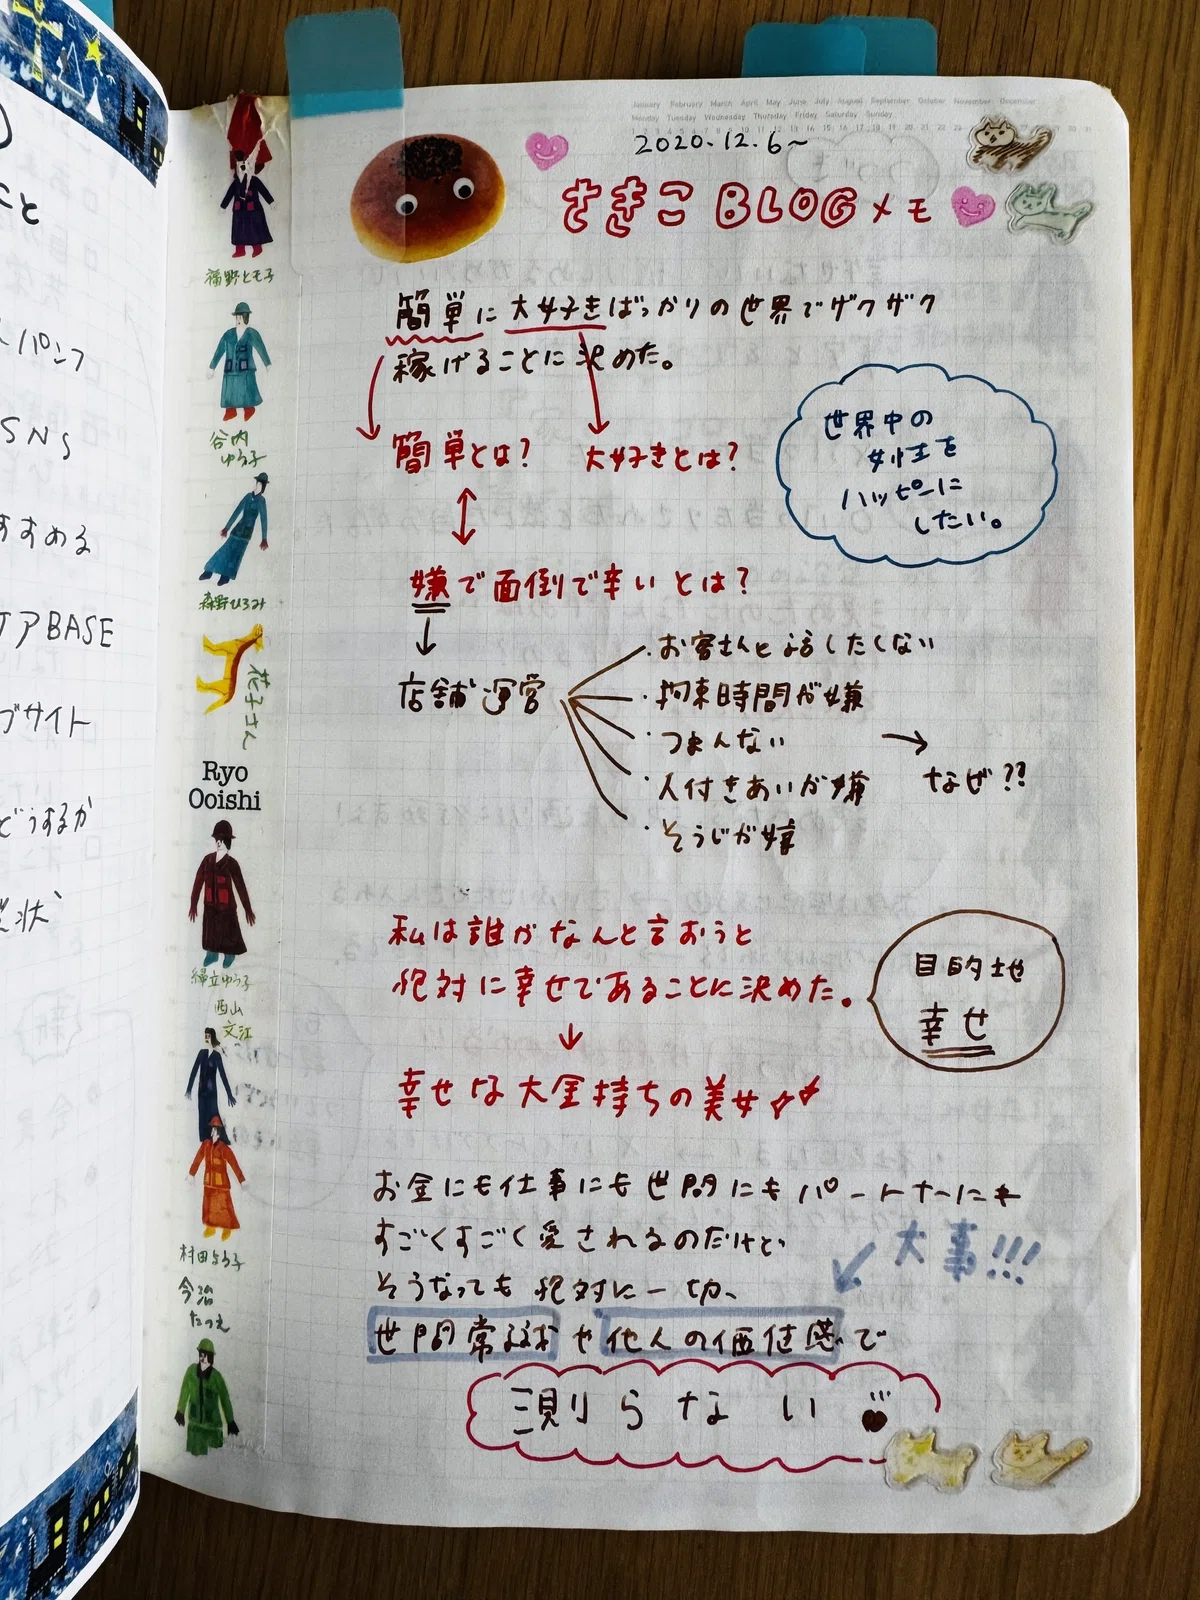 2020.12.6〜
さきこ BLOG メモ
簡単に大好きばっかりの世界でザクザク
稼げることに決めた。
簡単とは?
大好きとは?
世界中の
女性を
ハッピーに
したい。
嫌で面倒で辛いとは?
店舗運営
・お客さんと話したくない
・拘束時間が嫌
・つまんない
・人付きあいが嫌
・そうじが嫌
→ なぜ??
私は誰がなんと言おうと
絶対に幸せであることに決めた。
目的地
幸せ
幸せな大金持ちの美女
お金にも仕事にも世間にもパートナーにも
すごくすごく愛されるのだけど、
大事!!!
そうなっても絶対に一切、
世間常識や他人の価値感で
測らない
福野とモ子
谷内
ゆう子
森野ひろみ
花子さん
Ryo
Ooishi
西山
文江
村田よう子
今治
たつえ
こと
パンフ
SNS
すすめる
アBASE
ブサイト
どうするか
状